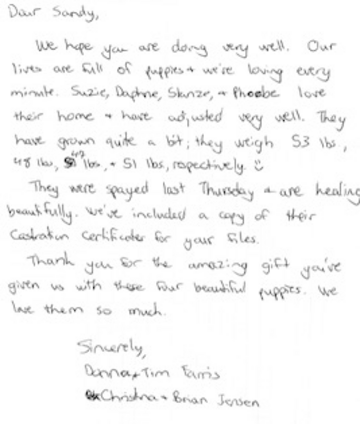 Dear Sandy,
We hope you are doing very well. Our
lives are full of puppies + we're loving every
minute. Suzie, Daphne, Stanze, + Phoebe love
their home + have adjusted very well. They
have grown quite a bit; they weigh 53 lbs.,
48 lbs., 49 lbs., + 51 lbs, respectively. ☺
They were spayed last Thursday + are healing
beautifully. We've included a copy of their
Castration Certificates for your files.
Thank you for the amazing gift you've
given us with these four beautiful puppies. We
love them so much.
Sincerely,
Donna + Tim Farris
Christina + Brian Jensen